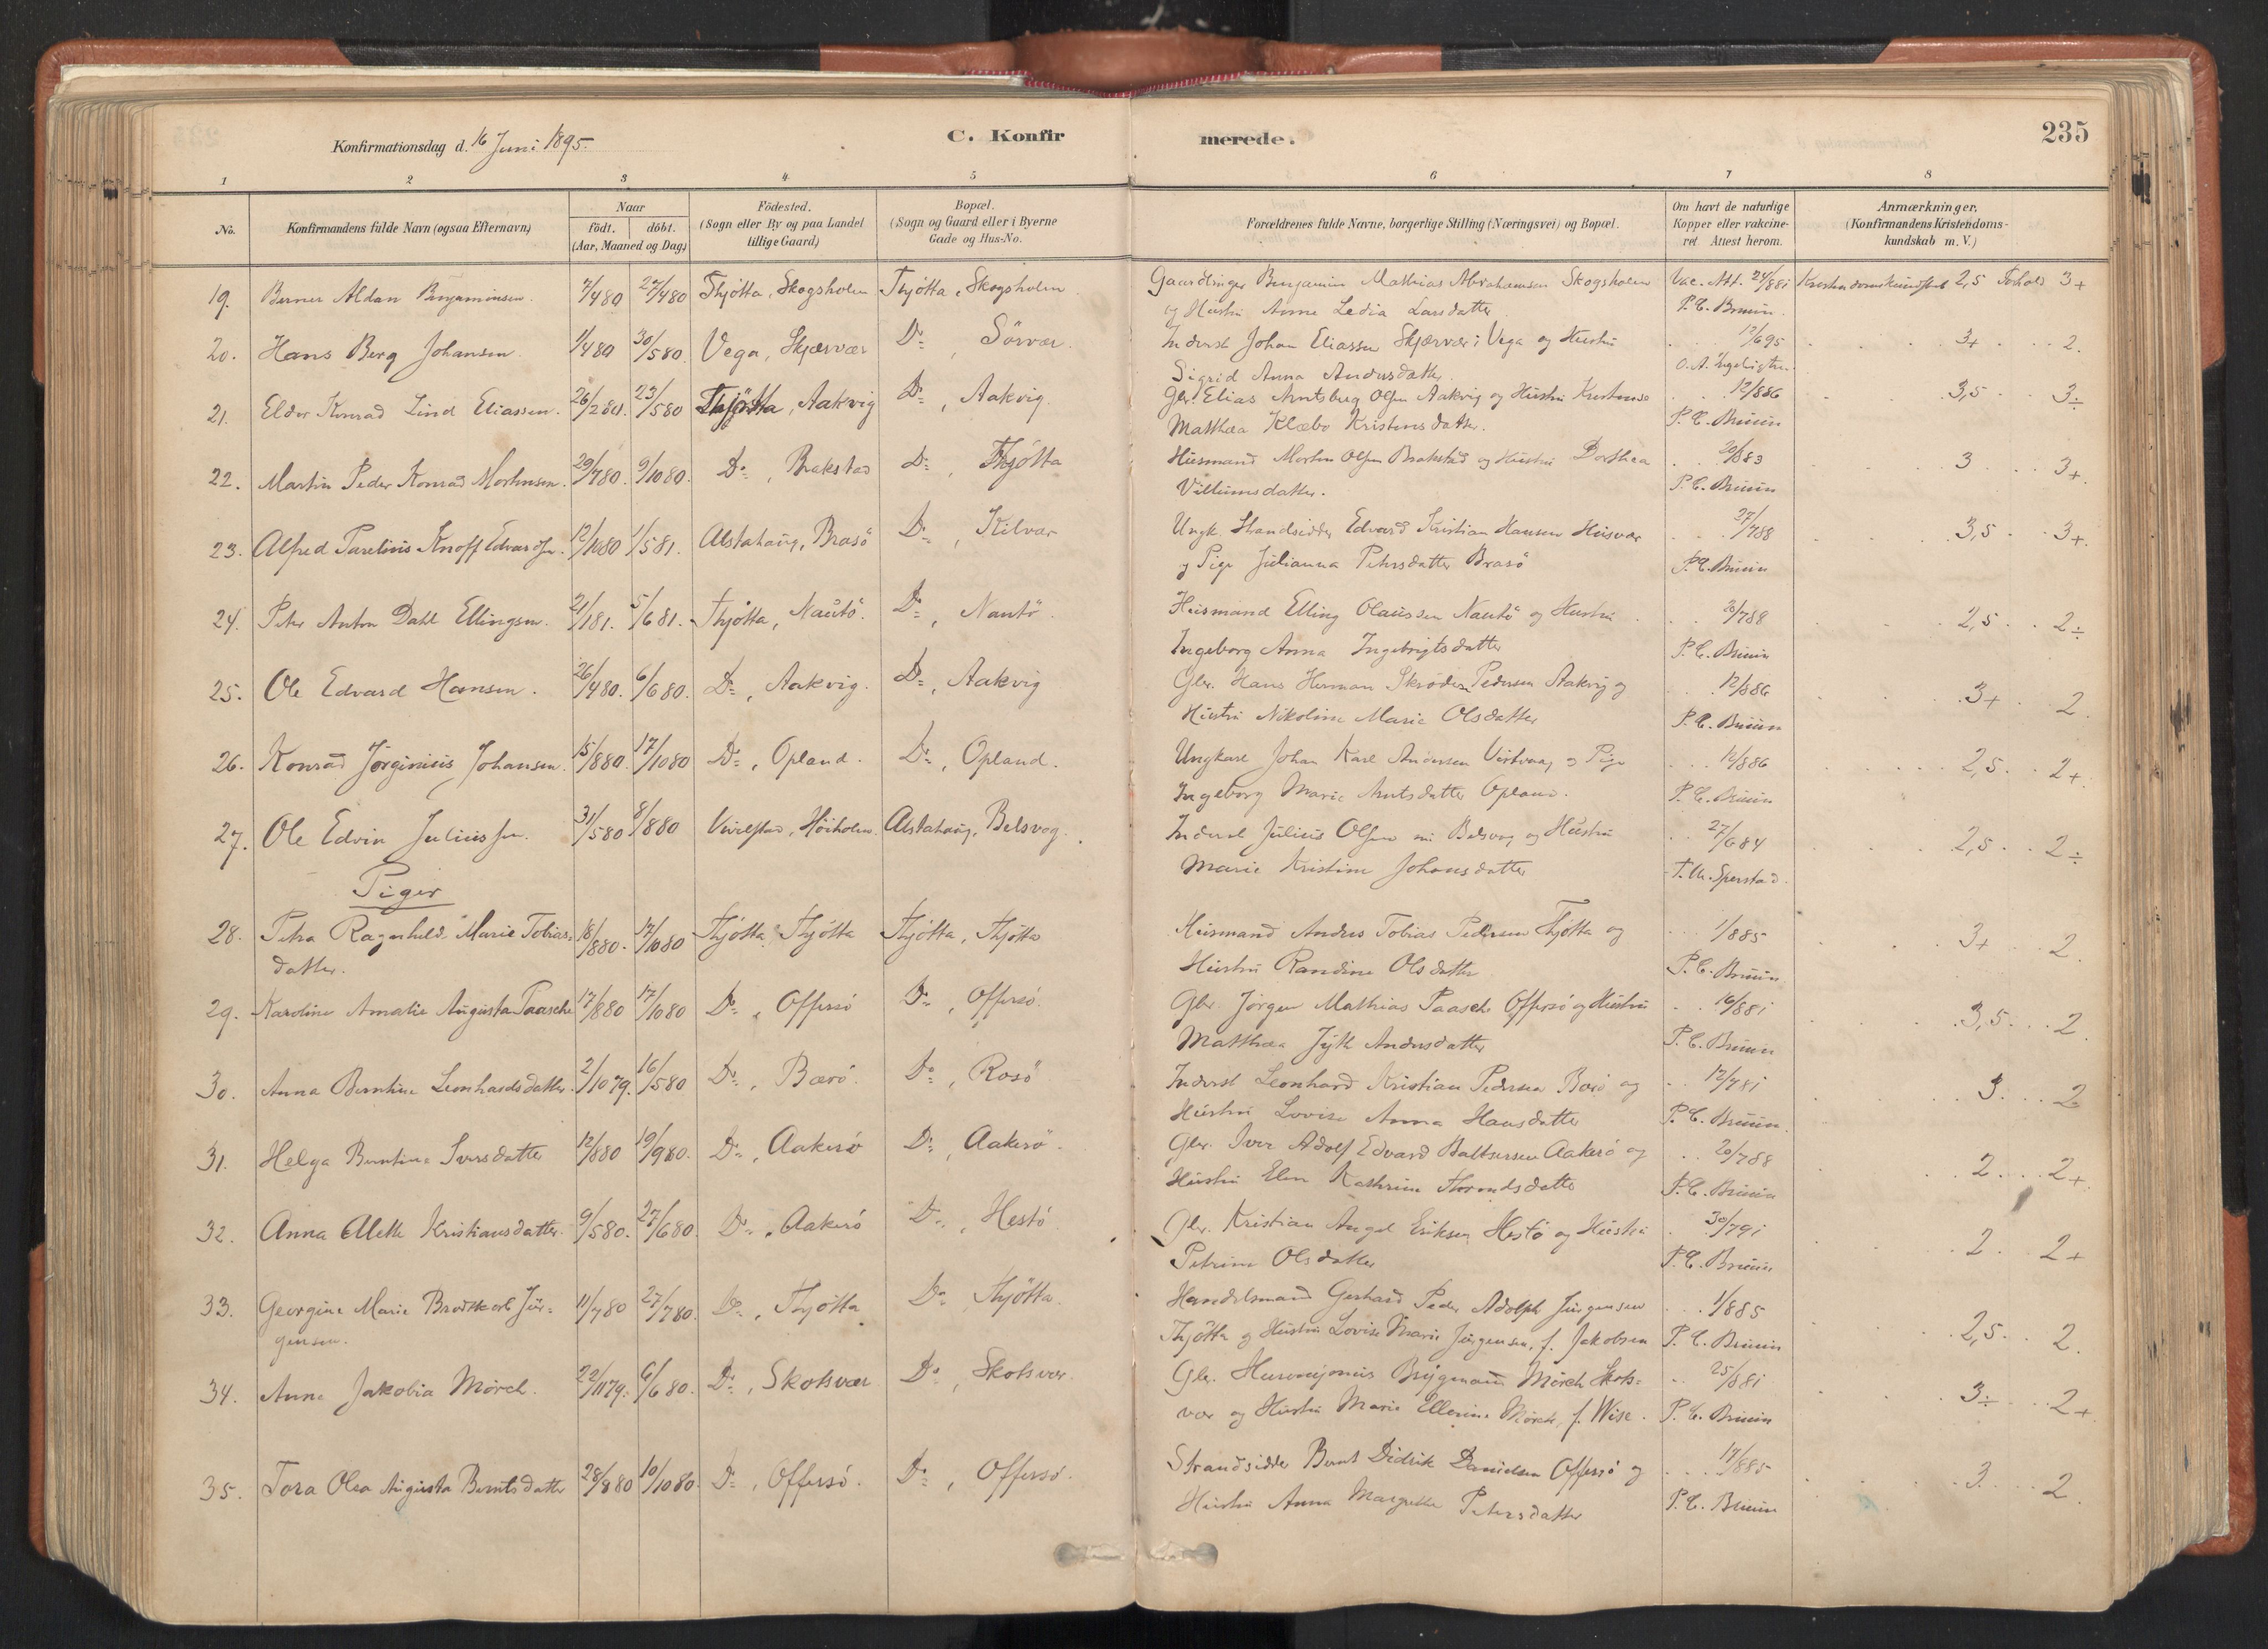 Konfirmationsdag d. 16 Juni 1895.
C. Konfir
merede.
235
1 2 3 4 5 6 7 8
No.
Konfirmandens fulde Navn (ogsaa Efternavn)
Naar
födt. döbt.
(Aar, Maaned og Dag)
Födested.
(Sogn eller By og paa Landet
tillige Gaard)
Bopæl.
(Sogn og Gaard eller i Byerne
Gade og Hus-No.
Forældrenes fulde Navne, borgerlige Stilling (Næringsvei) og Bopæl.
Om havt de naturlige
Kopper eller vakcine-
ret Attest herom.
Anmærkninger,
(Konfirmandens Kristendoms-
kundskab m. V.)
19. Berner Aldan Benjaminsen. 7/480 27/480 Thjötta, Skogsholm Thjötta, Skogsholm Benjamin Mathias Abrahamsen Skogsholm Vac. Att. 24/881 Kristendomskundskab 2,5 Forhold 3+
og Hustru Anne Ledia Larsdatter P. C. Bruun.
20. Hans Berg Johansen. 1/480 30/580. Vega, Skjærvær Do , Sörvær. Inderst Johan Eliassen Skjærvær i Vega og Hustru 12/695 3+ 2.
Sigrid Anna Andersdatter O. A.
21. Eldor Konrad Lind Eliassen. 26/280. 23/580 Thjötta, Aakvig Do , Aakvig. Gbr. Elias Olsen Aakvig og Hustru 12/886 3,5 3÷
Matthea Klæbo Kristensdatter. P. C. Bruun
22. Martin Peder Konrad Mortensen. 29/780. 9/1080. Do , Brakstad Do , Thjötta Husmand Morten Olsen Brakstad og Hustru Dorthea 20/883 3 3+.
Villumsdatter. P. C. Bruun
23. Alfred Parelius Knoff Edvardsen. 12/1080 1/581. Alstahaug, Brasö Do , Kilvær Ungk. Strandsidder Edvard Kristian Hansen Husvær 27/788 3,5 3+.
og Pige Julianna Petersdatter Brasö P. C. Bruun
24. Peter Anton Dahl Ellingsen. 21/181. 5/681. Thjötta, Nautö. Do , Nautö. Husmand Elling Olaussen Nautö og Hustru 20/788 2,5 2÷
Ingeborg Anna Ingebrigtsdatter P. C. Bruun
25. Ole Edvard Hansen. 26/480. 6/680. Do , Aakvig. Do , Aakvig Gbr. Hans Herman Skröder Pedersen Aakvig og 12/886 3+ 2.
Hustru Nikoline Marie Olsdatter P. C. Bruun
26. Konrad Jörginius Johansen. 15/880. 17/1080 Do , Opland. Do , Opland. Ungkarl Johan Karl Andersen og Pige 12/886 2,5 2+.
Ingeborg Marie Opland. P. C. Bruun
27. Ole Edvin Juliussen. 31/580 8/880 Vevelstad, Höiholm. Alstahaug, Belsvog. Inderst Julius Olsen nu Belsvog og Hustru 27/684 2,5 2÷
Marie Kristine Johansdatter Sperstad.
Piger
28. Petra Ragnhild Marie Tobias- 18/880. 17/1080 Thjötta, Thjötta Thjötta, Thjötta Husmand Anders Tobias Pedersen Thjötta og 1/885 3+ 2.
datter. Hustru Randine Olsdatter P. C. Bruun
29. Karoline Amalie Augusta Paasche 17/880 17/1080 Do , Offersö Do , Offersö. Gbr. Jörgen Mathias Paasche Offersö og Hustru 16/881 3,5 2.
Matthea Jytte Andersdatter P. C. Bruun
30. Anna Berntine Leonhardsdatter. 2/1079. 16/580 Do , Bærö. Do , Rosö Inderst Leonhard Kristian Pedersen og 12/781 3 2
Hustru Lovise Anna Hansdatter P. C. Bruun.
31. Helga Berntine Iversdatter 12/880 19/980. Do , Aakerö Do , Aakerö. Gbr. Iver Adolf Edvard Baltsersen Aakerö og 20/788 2 2+.
Hustru Elen Kathrine Throndsdatter P. C. Bruun
32. Anna Alette Kristiansdatter. 9/580. 27/680. Do , Aakerö Do , Hestö. Gbr. Kristian Angel Eriksen Hestö og Hustru 30/791 2 2+
Petrine Olsdatter P. C. Bruun
33. Georgine Marie Brodtkorb Jür- 11/780 27/780. Do , Thjötta Do , Thjötta. Handelsmand Gerhard Peder Adolph Jürgensen 1/885 2,5 2.
gensen. Thjötta og Hustru Lovise Marie Jürgensen, f. Jakobsen P. C. Bruun
34. Anne Jakobia Mörch. 22/1179. 6/680. Do , Skotsvær Do , Skotsvær. Gbr. Mörch Skots- 25/881 3÷ 2+
vær og Hustru Marie Ellerine Mörch, f. Wise. P. C. Bruun
35. Tora Olea Augusta Berntsdatter 28/880 10/1080. Do , Offersö. Do , Offersö. Strandsidder Bernt Didrik Danielsen Offersö og 17/885 3 2.
Hustru Anna Margrethe Petersdatter P. C. Bruun